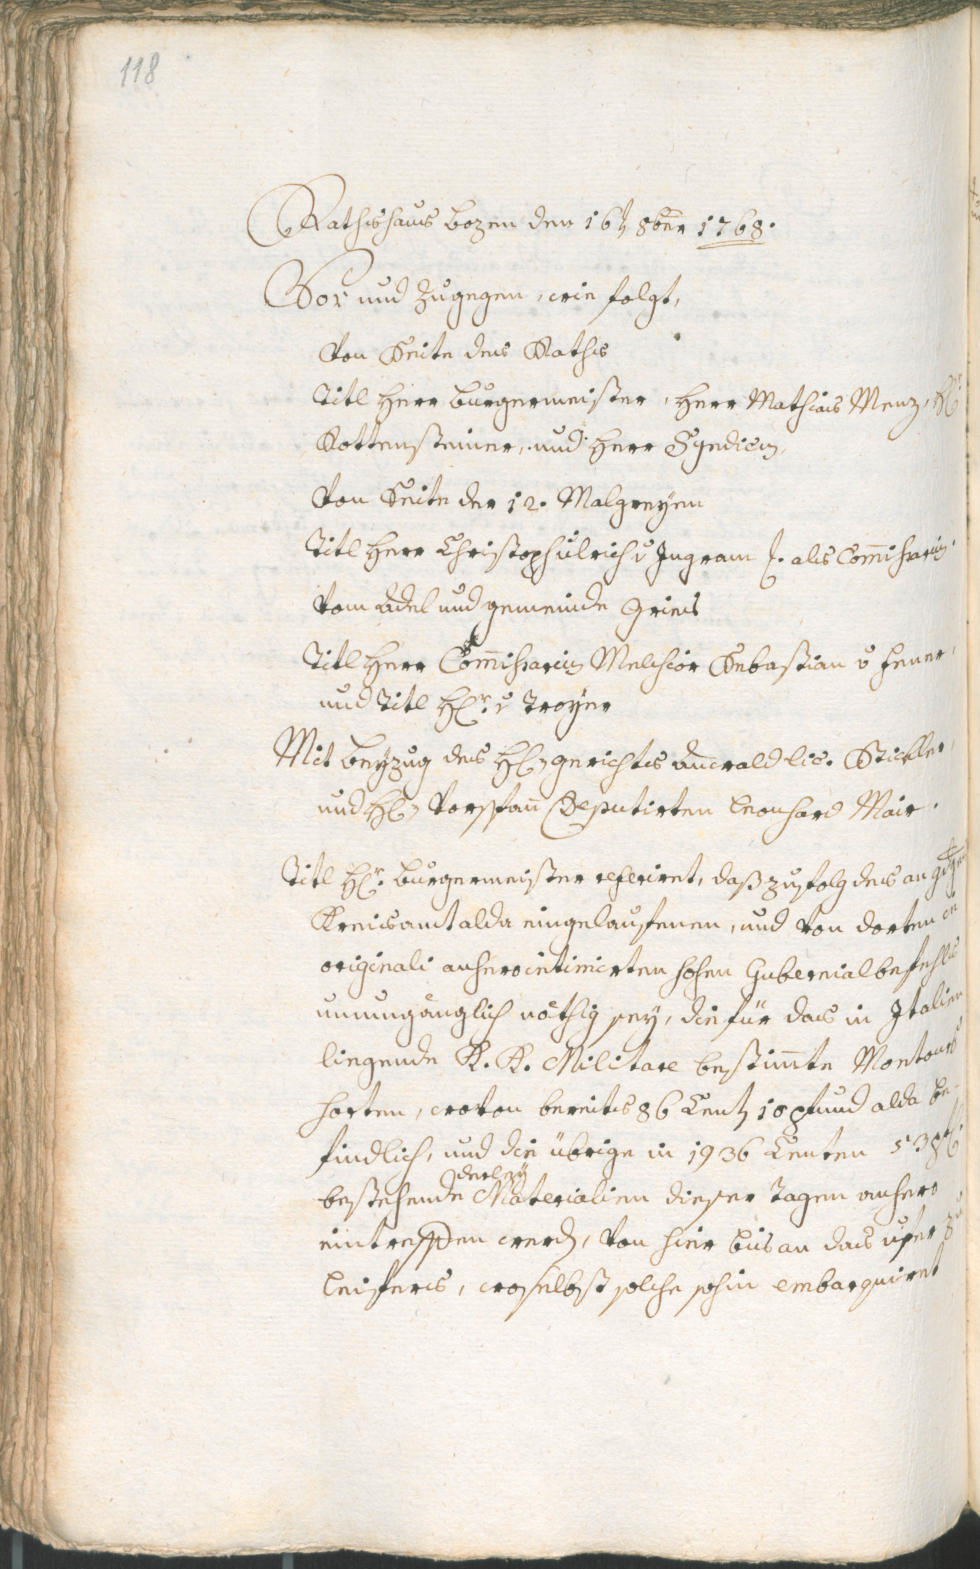 118
Rathshaus Bozen den 16t 8ber 1768.
Vor und zugegen, wie folgt,
Von Seite des Raths
Titl Herr Burgermeister, Herr Mathias Menz, Hl:
Rottensteiner, und Herr Syndicus,
Von Seite der 12. Malgreyen
Titl Herr Christoph Ulrich v Ingram p. als Commissarius
Vom Adel und gemeinde Gries
Titl Herr Commissarius Melchior Sebastian v
und Titl Hl: v Troyer
Mit Beyzug des Hl: gerichts Anwald lic. Stickler,
und Hl: Vorspann Deputirten Leonhard Mair.
Titl Hr: Burgermeister referiret, daß zufolg des an
Kreisamt alda eingelaufenen, und von dorten in
originali anhero intimirten hohen Gubernialbefehls
unumgänglich nöthig sey, die für das in Italien
liegende K. K. Militare bestimte Montours
sorten, wovon bereits 86 Cent 18 pfund alda be-
findlich, und die übrige in 1936 Centen 53
bestehende derley Materialien dieser Tagen anhero
eintreffen werd, von hier bis an das ufer zu
Leifers, woselbst solche sohin embarquiret